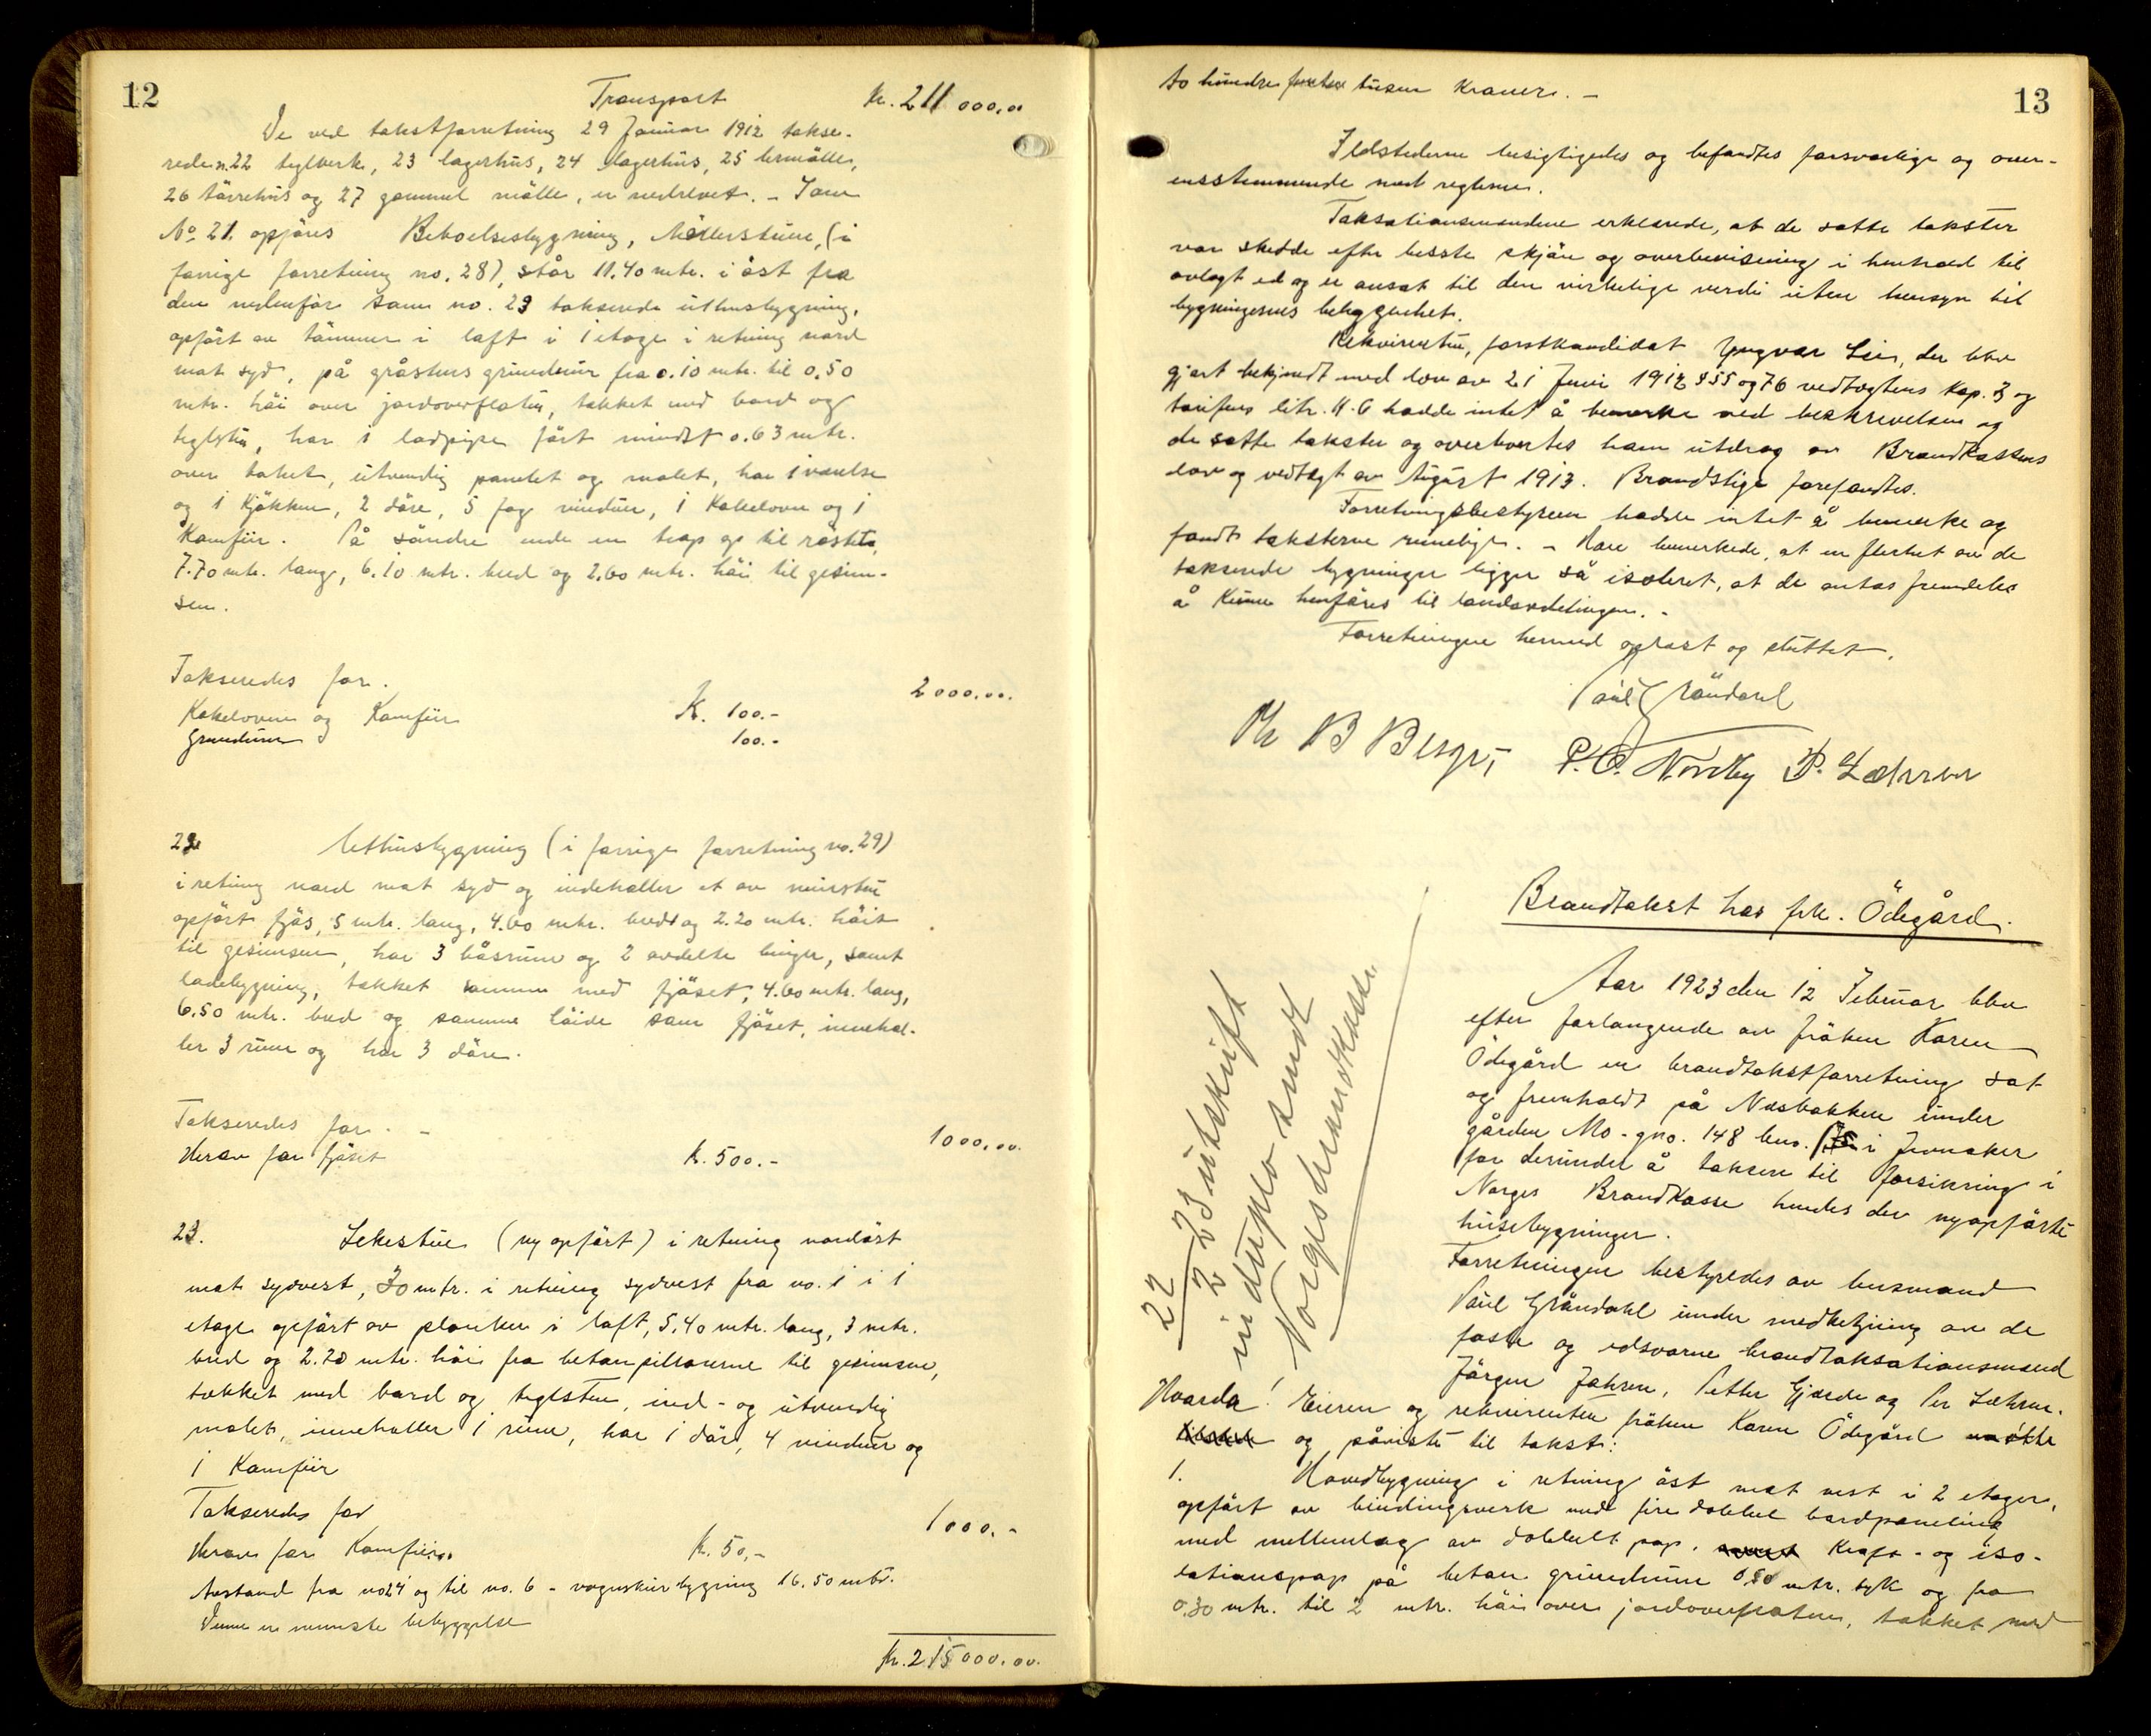 12
Transport Kr. 211 000,00
De ved takstforretning 29 Januar 1912 takse-
rede n. 22 teglverk, 23 lagerhus, 24 lagerhus, 25 lermölle,
26 törrehus og 27 gammel mölle, er nedrevet. - Som
No 21 opföres Beboelsesbygning, Möllerstuen, (i
forrige forretning no. 28), står 11.40 mtr. i öst fra
den nedenfor som no. 23 takserede uthusbygning,
opfört av tömmer i laft i 1 etage i retning nord
mot syd, på gråstens grundmur fra 0.10 mtr. til 0.50
mtr. höi over jordoverflaten, tækket med bord og
teglsten, har 1 ladpipe fört mindst 0.63 mtr.
over taket, utvendig panelet og malet, har 1 værelse
og 1 Kjökken, 2 döre, 5 fag vinduer, 1 Kakelovn og 1
Komfür. På söndre ende en trap op til röstet,
7.70 mtr. lang, 6.10 mtr. bred og 2.60 mtr. höi til gesim-
sen.
Takseredes for. 2000,00.
Kakelovn og Komfür K. 100.-
Grundmur 100.-
22 Uethusbygning (i forrige forretning no. 29)
i retning nord mot syd og indeholler et av mursten
opfört fjös, 5 mtr. lang, 4.60 mtr. bredt og 2.20 mtr. höit
til gesimsen, har 3 båsrum og 2 avdelte binger, samt
ladebygning, tækket sammen med fjöset, 4.60 mtr. lang,
6.50 mtr. bred og samme höide som fjöset, innehol-
ler 3 rum og har 3 döre.
Takseredes for. - 1000,00.
Herav for fjöset k. 500.-
23. Lekestue (ny opfört) i retning nordöst
mot sydvest, 30 mtr. i retning sydvest fra no. 1 i 1
etage opfört av planker i laft, 5.40 mtr. lang, 3 mtr.
bred og 2.20 mtr. höi fra betonpillarerne til gesimsen,
tækket med bord og teglsten, ind- og utvendig
malet, inneholler 1 rum, har 1 dör, 4 vinduer og
1 Komfür
Takseredes for 1000.-
Herav for Komfüren k. 50,-
Avstand fra no 24 og til no. 6 - vognskur bygning 16.50 mtr.
Denne er nærmeste bebyggelse
Kr. 215 000.00.
13
to hundre femten tusen Kroner. -
Ildstederne besigtigedes og befandtes forsvarlige og over-
ensstemmende med reglerne.
Taksationsmændene erklærede, at de satte takster
var skedde efter beste skjön og overbevisning i henhold til
avlagt ed og er ansat til den virkelige verdi uten hensyn til
bygningernes beliggenhet.
Rekvirenten, forstkandidat Yngvar Lie, der blev
gjort bekjendt med lov av 21 Juni 1912 § 55 og 76 vedtægtens Kap. 3 og
tarifens litr. H. 6 hadde intet å bemerke ved beskrivelsen og
de satte takster og overlevertes ham utdrag av Brandkassens
lov og vedtægt av August 1913. Brandstige forefandtes.
Forretningsbestyreren hadde intet å bemerke og
fandt taksterne rimelige. - Han bemerkede, at en flerhet av de
takserede bygninger ligger så isoleret, at de antas fremdeles
å kunne henföres til landavdelingen. -
Forretningen hermed oplæst og sluttet.
Paul Gröndahl
P. O. Nordby P. Læhren
Brandtakst hos frk. Ödegård.
Aar 1923 den 12 Februar blev
efter forlangende av fröken Karen
Ödegård en brandtakstforretning sat
og fremholdt på Næsbakken under
gården Mo - gno. 148 bno. 75 i Jevnaker
for derunder å taksere til forsikring i
Norges Brandkasse hendes der nyopförte
husebygninger.
Forretningen bestyredes av lensmand
Paul Gröndahl under medbetjening av de
faste og edsvorne brandtaksationsmænd
Jörgen Johren, Petter Gjærde og Per Læhren.
22/2 23 utskrift
in duplo sendt
Norges brandkasse.
Hvorda! Eieren og rekvirenten fröken Karen Ödegård mötte
og påviste til takst:
1. Hovedbygning i retning öst mot vest i 2 etager,
opfört av bindingsverk med fire dobbel bordpaneling
med mellemlag av dobbelt pap, Kraft - og iso-
lationspap på beton grundmur 0.50 mtr. tyk og fra
0.30 mtr. til 2 mtr. höi over jordoverflaten, tækket med